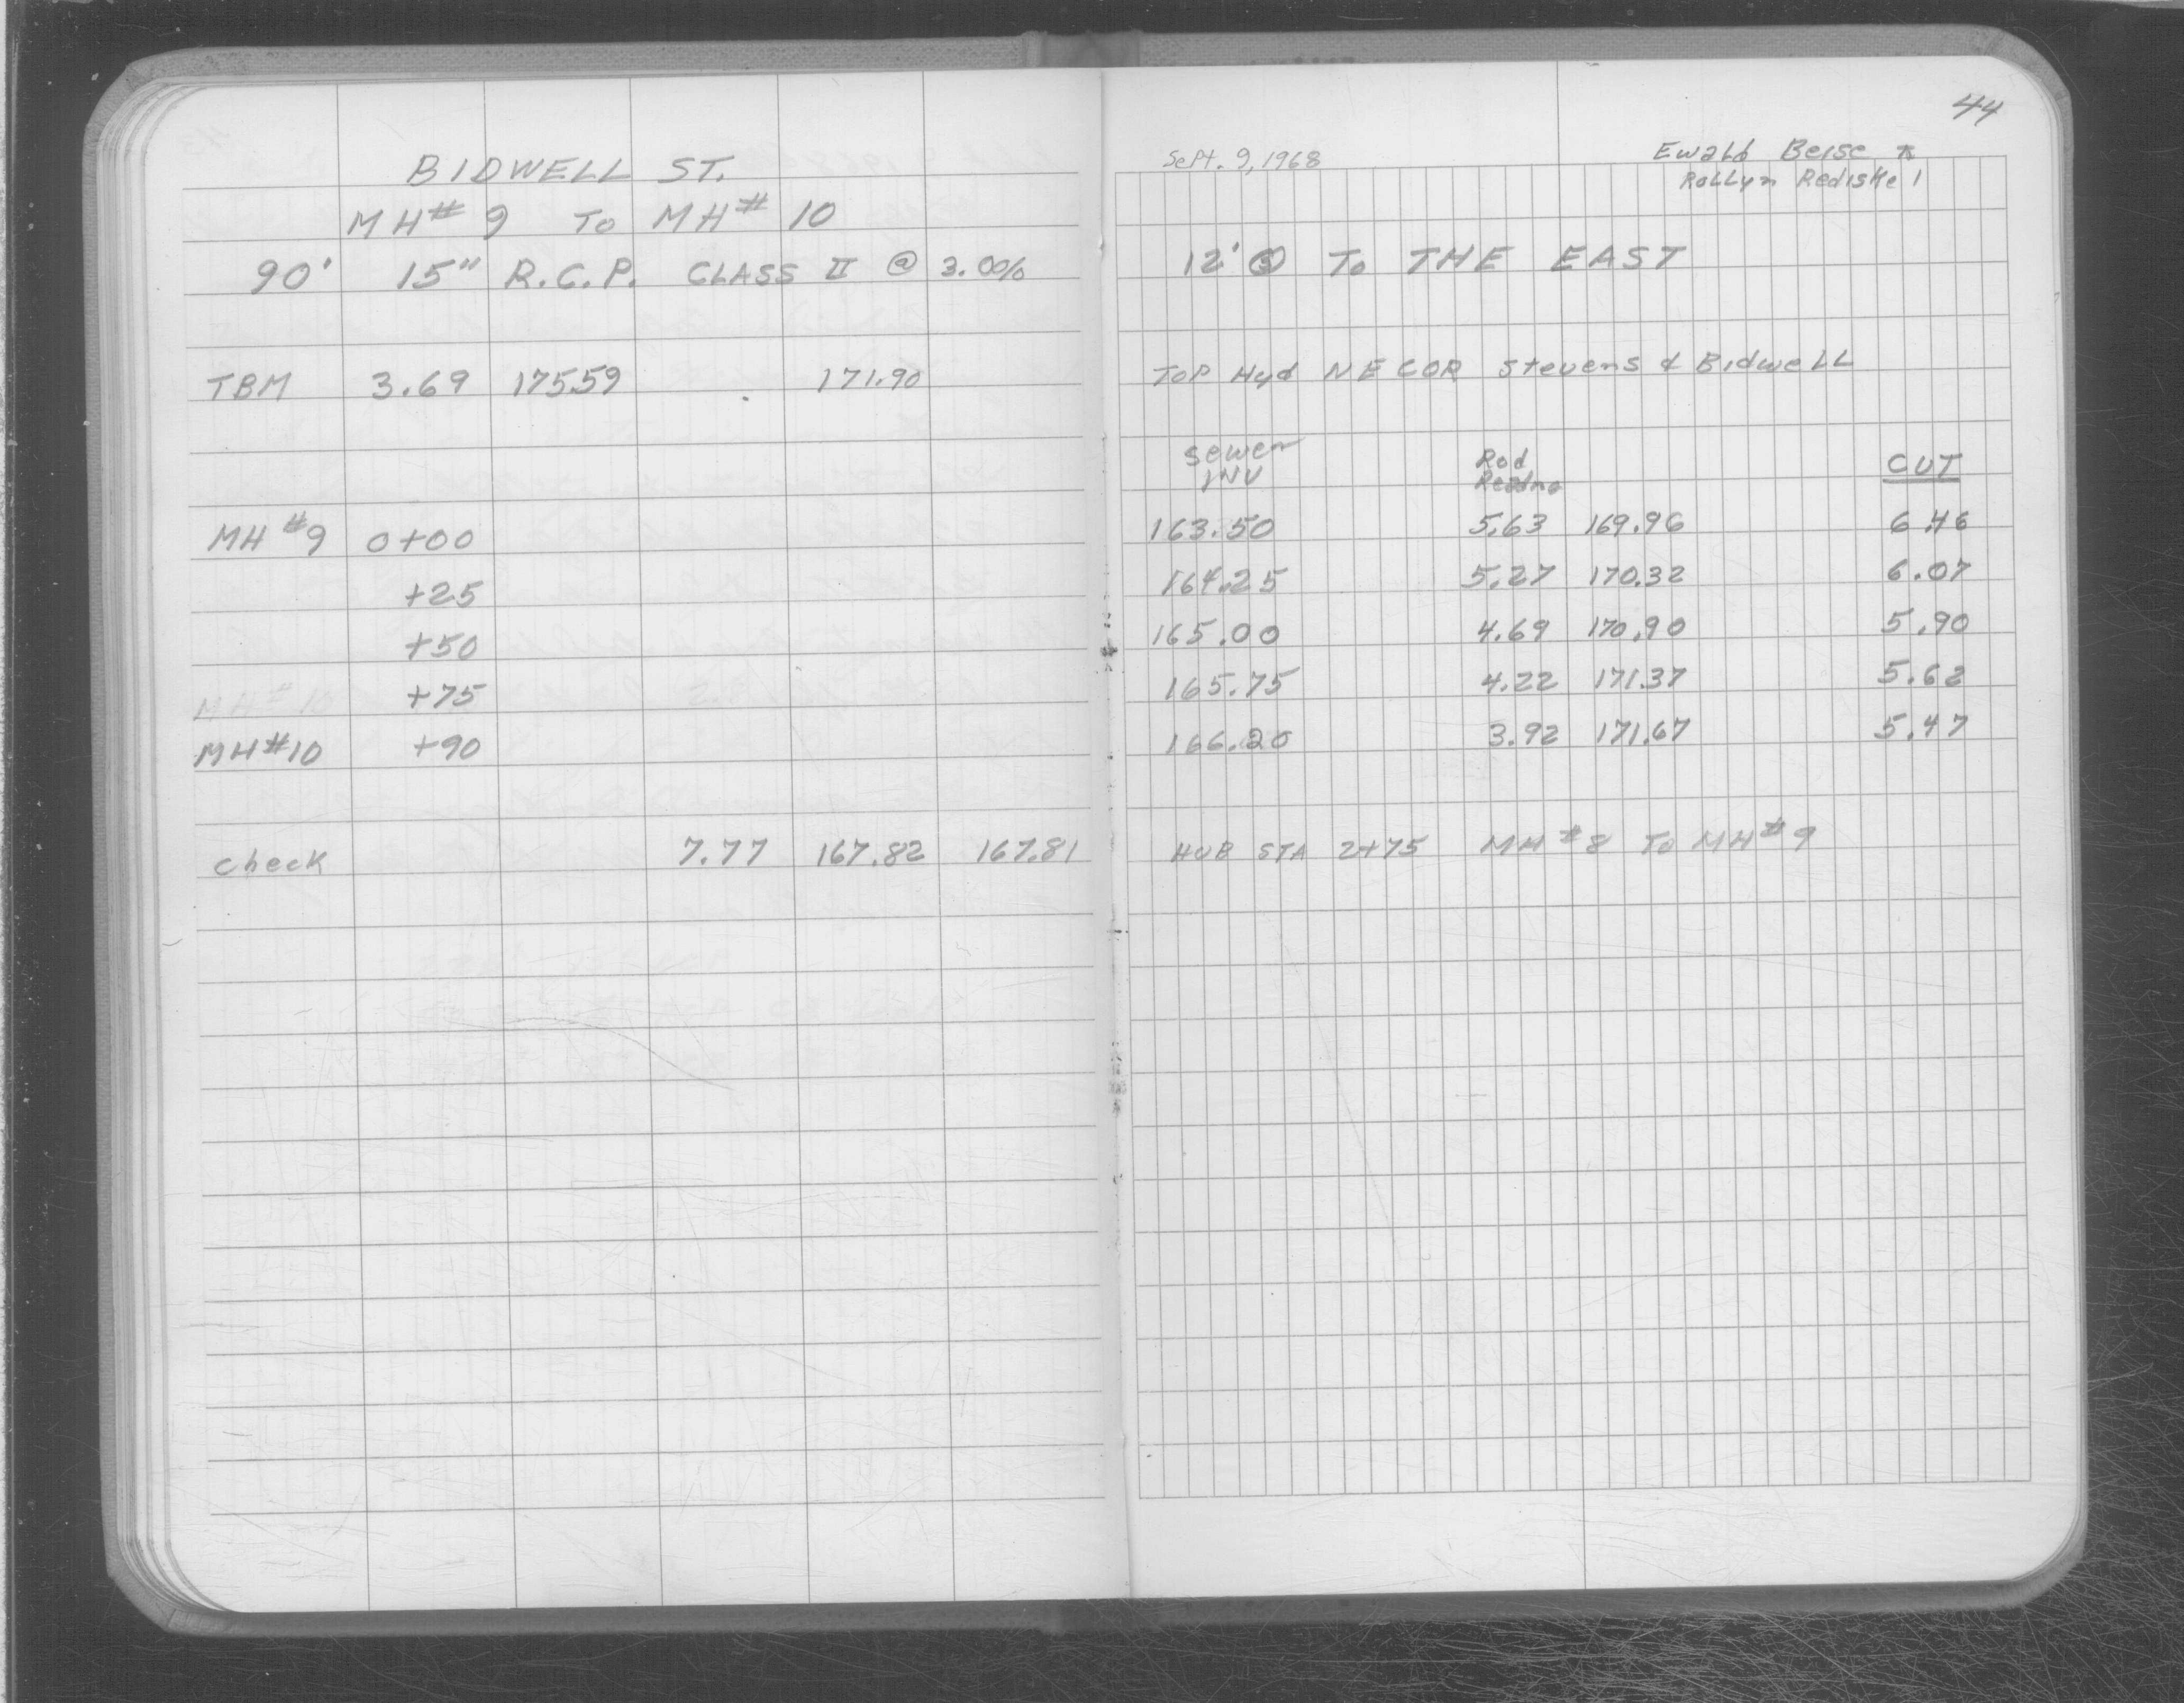 BIDWELL ST.
MH# 9 To MH# 10
90' 15" R.C.P. CLASS II @ 3.00%
TBM 3.69 175.59 171.90
MH #9 0+00
+25
+50
MH# 10 +75
MH#10 +90
check 7.77 167.82 167.81
44
Sept. 9, 1968
Ewald Beise
Rollyn Rediske
12' To THE EAST
TOP Hyd NE COR Stevens & Bidwell
Sewer INV Rod Readng CUT
163.50 5.63 169.96 6.46
164.25 5.27 170.32 6.07
165.00 4.69 170.90 5.90
165.75 4.22 171.37 5.62
166.20 3.92 171.67 5.47
HUB STA 2+75 MH #8 To MH#9